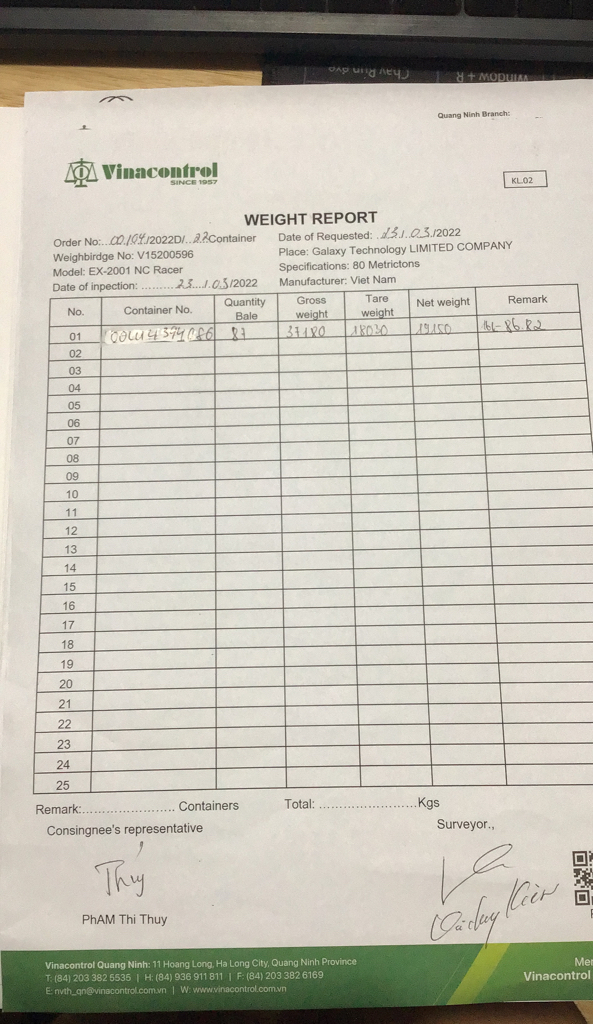 Window + R
Chạy Run.exe
Quang Ninh Branch:
Vinacontrol
SINCE 1957
KL.02
WEIGHT REPORT
Order No:...00/04/2022D/...22Container
Date of Requested: .23/.03./2022
Weighbirdge No: V15200596
Place: Galaxy Technology LIMITED COMPANY
Model: EX-2001 NC Racer
Specifications: 80 Metrictons
Date of inpection: ..........23.../.03/2022
Manufacturer: Viet Nam
No. Container No. Quantity Bale Gross weight Tare weight Net weight Remark
01 87 37180 18030 19150 86.82
02
03
04
05
06
07
08
09
10
11
12
13
14
15
16
17
18
19
20
21
22
23
24
25
Remark:....................... Containers Total: ........................Kgs
Consingnee's representative
Surveyor.,
Thuy
PhAM Thi Thuy
Vinacontrol Quang Ninh: 11 Hoang Long, Ha Long City, Quang Ninh Province
T: (84) 203 382 5535 | H: (84) 936 911 811 | F: (84) 203 382 6169
E: nvth_qn@vinacontrol.com.vn | W: www.vinacontrol.com.vn
Vinacontrol